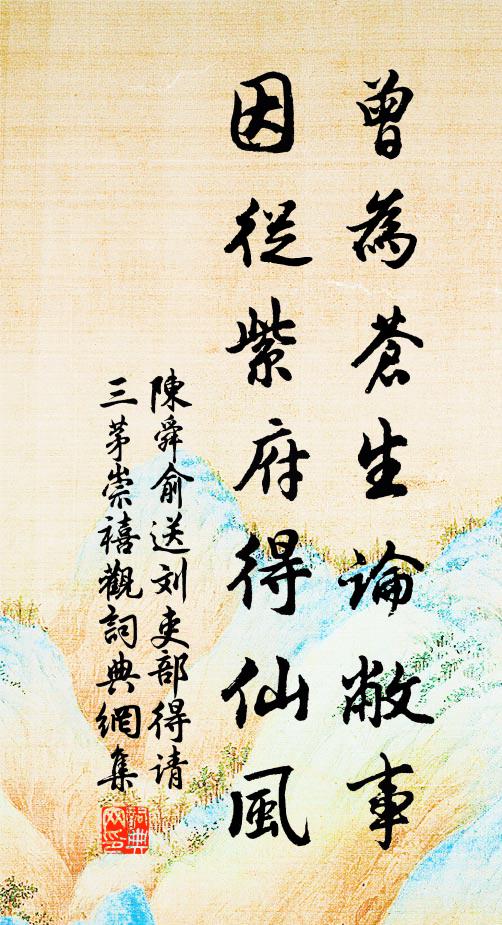 曾為蒼生論敝事
因從紫府得仙風
陳舜俞送刘吏部得请
三茅崇禧觀詞典網集
詞典
网印